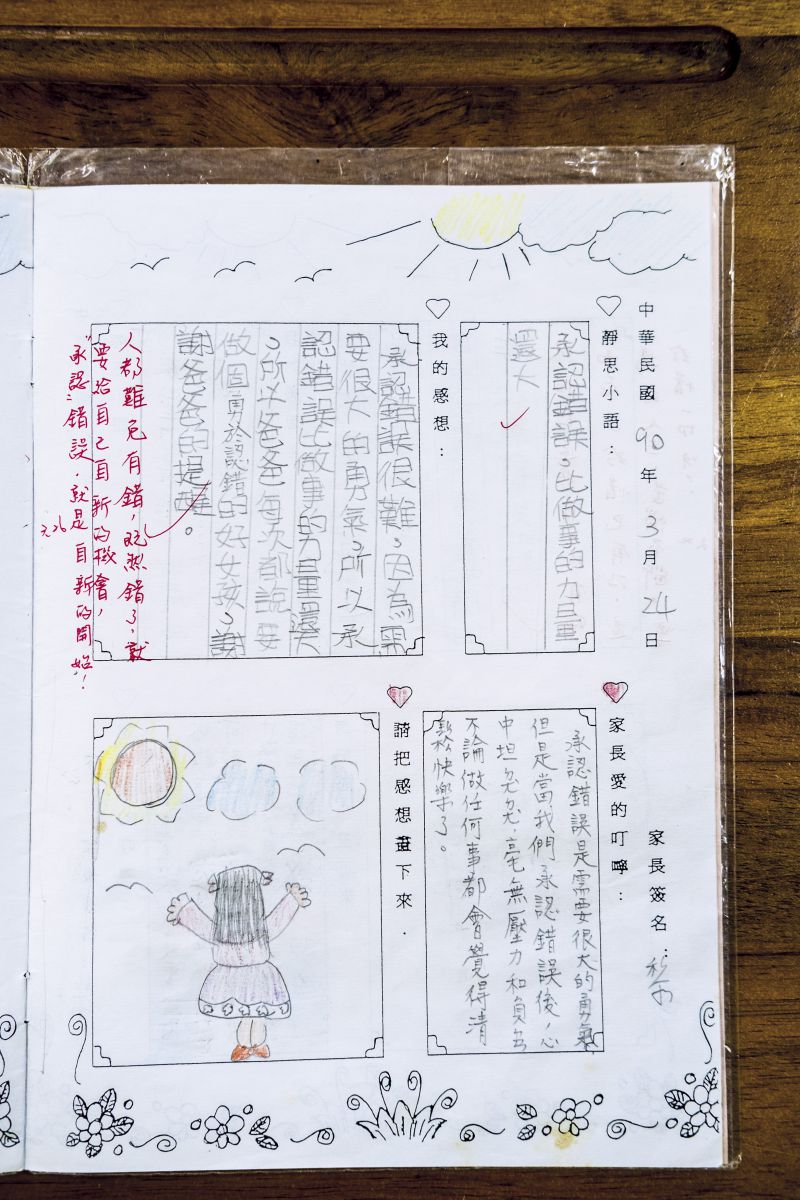 中華民國90年3月24日
靜思小語：
承認錯誤，比做事的力量
還大
我的感想：
承認錯誤很難，因為需
要很大的勇氣，所以承
認錯誤比做事的力量還大
，所以爸爸每次都說要
做個勇於認錯的好女孩，謝
謝爸爸的提醒。
人都難免有錯，既然錯了，就
要給自己自新的機會，
"承認"錯誤，就是自新的開始！
3.26
家長簽名：
家長愛的叮嚀：
承認錯誤是需要很大的勇氣
但是當我們承認錯誤後，心
中坦兌兌，毫無壓力和負

不論做任何事都會覺得清
鬆快樂了。
請把感想畫下來．